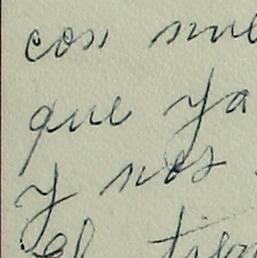 con nue
que ya
y nos
el tiem